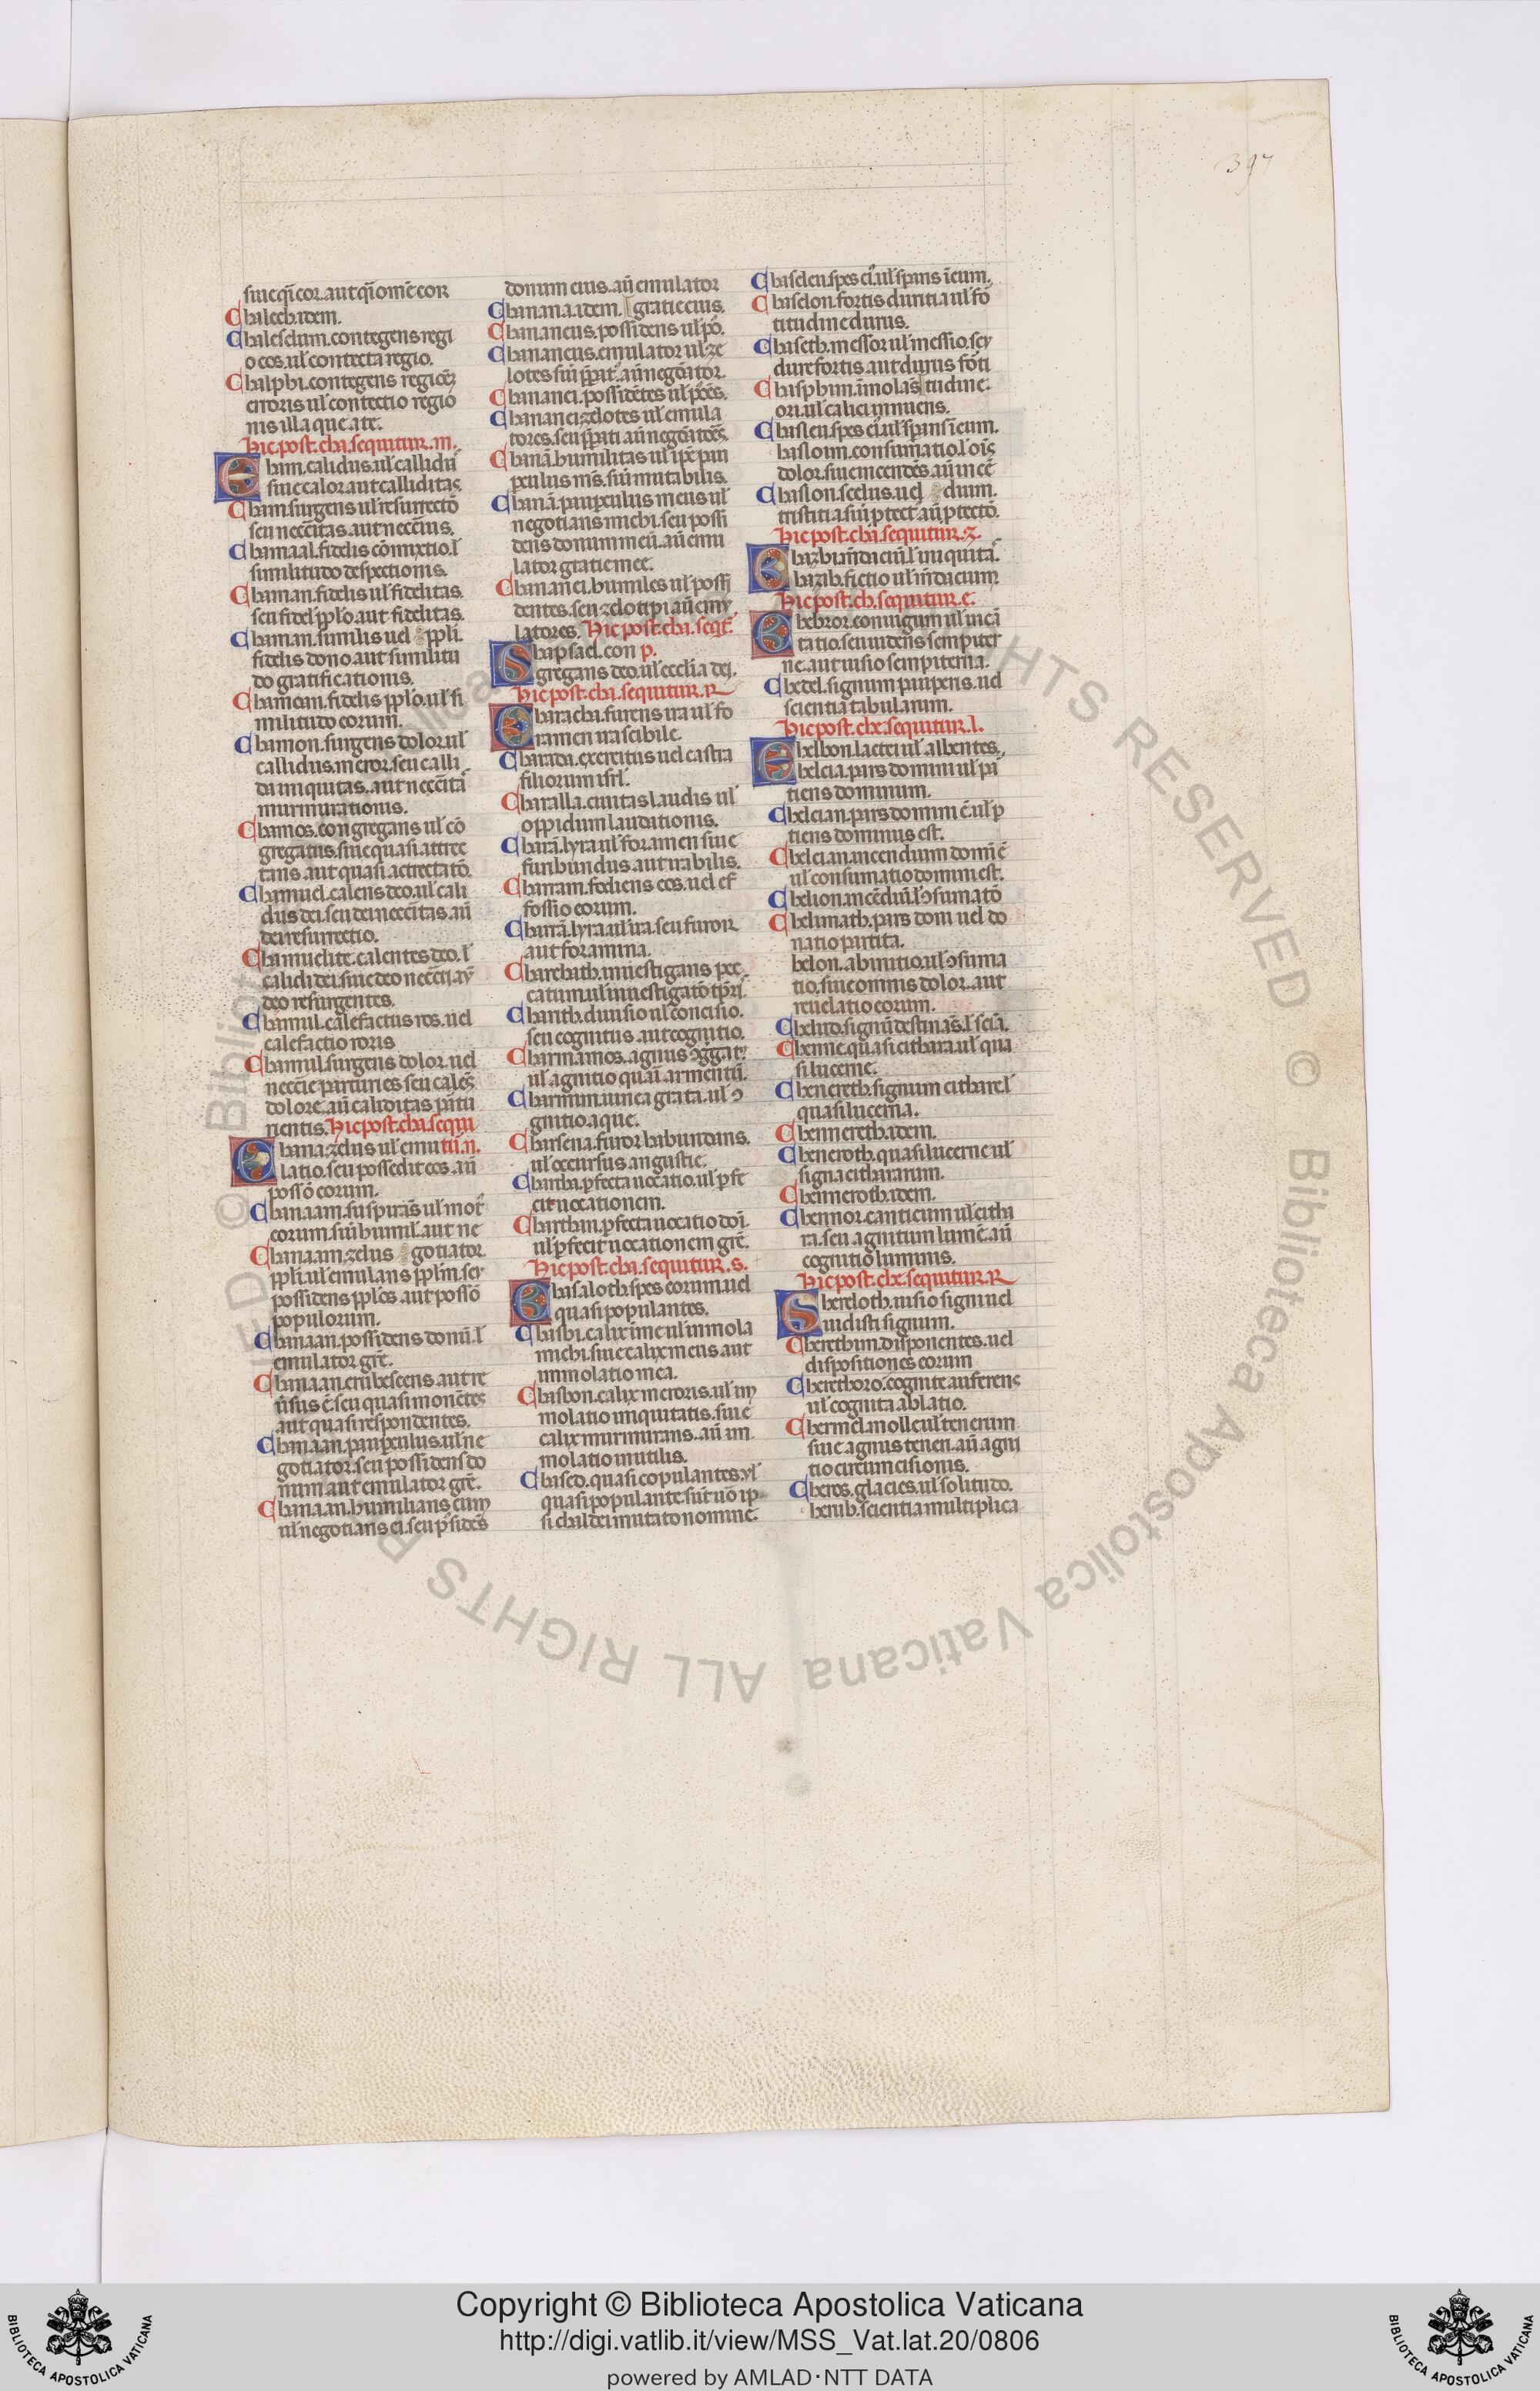 397
siue q̄i cor. aut q̄i om̄e cor
Chaleb. idem.
Chalesdum. contegens regi
oēs. ul contecta regio.
Chalphi. contegens regiōēz
erroris ul contectio regio
nis
Hic post. cha. sequitur. m.
Cham. calidus. ul callidū
siue calor. aut calliditas.
Cham. surgens ul resurrectō
seu necc̄itas. aut necc̄ius.
Chamaal. fidelis cōmixtio. l
similitudo despectionis.
Chaman. fidelis ul fidelitas
seu fidel pplo. aut fidelitas.
Chaman. similis uel ppli.
fidelis dono. aut similitu
do gratificationis.
Chameam. fidelis pplo. ul si
militudo eorum.
Chamon. surgens dolor. ul
callidus. meror. seu calli
da iniquitas. aut necc̄ita
murmurationis.
Chamos. congregans ul cō
gregatus. siue quasi attrec
tans aut quasi actrectatō.
Chamuel. calens deo. ul cali
dus dei. seu dei necc̄itas. aū
dei resurrectio.
Chamuelite. calentes deo. l
calidi dei. siue deo
deo resurgentes.
Chamul. calefactus ros. uel
calefactio roris
Chamul. surgens dolor. uel
necc̄ie parturies seu calēs
dolore. aū caliditas partu
rientis. Hic post. cha. sequi
Chana. zelus ul emu tur. n.
latio. seu possedit eos. aū
possō eorum.
Chanaam. suspirās ul mot
eorum. siū humil. aut ne
Chanaam. zelus gotiator
ppli. ul emulans pplm. seu
possidens pplos. aut possō
populorum.
Chanaan. possidens domū. l
emulator grē.
Chanaan. erubescens. aut re
ūsus ē. seu quasi monētes
aut quasi respondentes.
Chanaan. pauperculus. ul ne
gotiator. seu possidens do
num aut emulator grē.
Chanaan. humilians eum
ul negotians ei. seu psidēs
donum eius. aū emulator
Chanana. idem. gratie eius.
Chananeus. possidens ul
Chananeus. emulator ul ze
lotes siū
Chananei. possidētes ul
Chananei zelotes ul emula
tores. seu
Chanā. humilitas ul ipē pau
perculus
Chanā. pauperculus meus ul
negotians michi. seu possi
dens donum meū. aū emu
lator gratie mee.
Chananei. humiles ul possi
dentes. seu zelotipi aū emu
latores. Hic post. cha. seqt.
Chapsael. con p.
gregans deo. ul ecclia dei.
Hic post. cha. sequitur. R
Characha. furens ira ul fo
ramen irascibile.
Charada. exercitus uel castra
filiorum isrl.
Charalla. ciuitas laudis ul
oppidum laudationis.
Charā. lyra ul foramen siue
furibundus aut irabilis.
Charram. fodiens eos. uel ef
fossio eorum.
Charā. lyra ul ira. seu furor
aut foramina.
Charebath. inuestigans pec
catum. ul
Charith. diuisio ul concisio.
seu cognitus. aut cognitio.
Charmamos. agnus
ul agnitio quasi armentū.
Charmim. uinea grata. ul
gnitio aque.
Charsena. furor labundans.
ul occursus angustie.
Chartha. perfecta uocatio. ul pfe
cit uocationem.
Charthan. perfecta uocatio doī.
ul perfecit uocationem grē.
Hic post. cha. sequitur. s.
Chasaloth. spes eorum. uel
quasi populantes.
Chasbi. calix ul inmola
michi. siue calix meus. aut
immolatio mea.
Chasbon. calix meroris. ul im
molatio iniquitatis. siue
calix murmurans. aū im
molatio inutilis.
Chased. quasi copulantes. ul
quasi populante. sūt uō ip
si chaldei mutato nomine.
Chaseleu. spes ei. ul spans ī eum.
Chaselon. fortis duritia ul fō
titudine durus.
Chaseth. messor ul messio. seu
dure fortis. aut durus forti
Chasphin. īmolas tudine.
ori. ul calici innuens.
Chasleu. spes ei. ul spans ī eum.
hasloim. consumatio. l oīs
dolor. siue incendēs. aū incē
Chaslon. scelus. uel dium.
tristitia. siū ptect. aū ptectō.
Hic post. cha. sequitur. z.
Chazbi. m̄daciū. l iniquita
hazib. fictio ul m̄dacium
Hic post. ch. sequitur. e.
Chebror. coniugium ul incā
tatio. seu uidens sempiter
ne. aut uisio sempiterna.
Chedel. signum pauperis. uel
scientia tabularum.
Hic post. che. sequitur. l.
Chelbon. lactei ul albentes.
Chelcia. pars domini ul pa
tiens dominum.
Chelcian. pars domini ē. ul p
tiens dominus est.
Chelcian. incendium domī ē
ul consumatio domini est.
Chelion. incēdiū. l ɔsumatō
Chelimath. pars dom uel do
natio partita.
helon. ab initio. ul ɔsuma
tio. siue omnis dolor. aut
reuelatio eorum.
Chelub. signū
Chenne. quasi cithara. ul qua
si lucerne.
Chenereth. signum cithare l
quasi lucerna.
Chennereth. idem.
Cheneroth. quasi lucerne ul
signa cithararum.
Chenneroth. idem.
Chennor. canticum ul citha
ra. seu agnitum lumē. aū
cognitio luminis.
Hic post. che. sequitur. R
Chereloth. uisio signi uel
uidisti signum.
Cherethim. disponentes. uel
dispositiones eorum
Cherethoro. cognite auferens
ul cognita ablatio.
Chermel. molle ul tenerum
siue agnus tener. aū agni
tio circumcisionis.
Cheros. glacies. ul solitudo.
herub. scientia multiplica
© Biblioteca Apostolica Vaticana ALL RIGHTS RESERVED
Copyright © Biblioteca Apostolica Vaticana
http://digi.vatlib.it/view/MSS_Vat.lat.20/0806
powered by AMLAD·NTT DATA
BIBLIOTECA APOSTOLICA VATICANA
BIBLIOTECA APOSTOLICA VATICANA